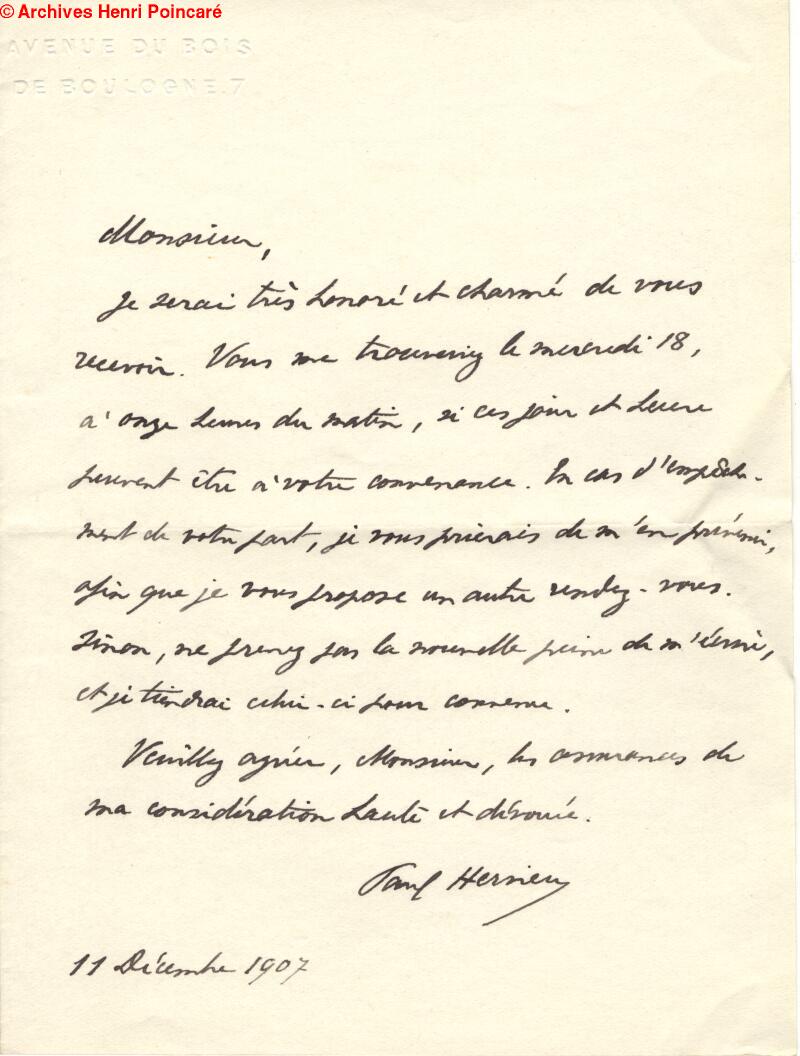 © Archives Henri Poincaré
AVENUE DU BOIS
DE BOULOGNE.7
Monsieur,
Je serai très honoré et charmé de vous
recevoir. Vous me trouveriez le mercredi 18,
à onze heures du matin, si ces jour et heure
peuvent être à votre convenance. En cas d'empêche-
ment de votre part, je vous prierais de m'en prévenir,
afin que je vous propose un autre rendez-vous.
Sinon, ne prenez pas la nouvelle peine de m'écrire,
et je tiendrai celui-ci pour convenu.
Veuillez agréer, Monsieur, les assurances de
ma considération haute et dévouée.
Paul Hervieu
11 Décembre 1907